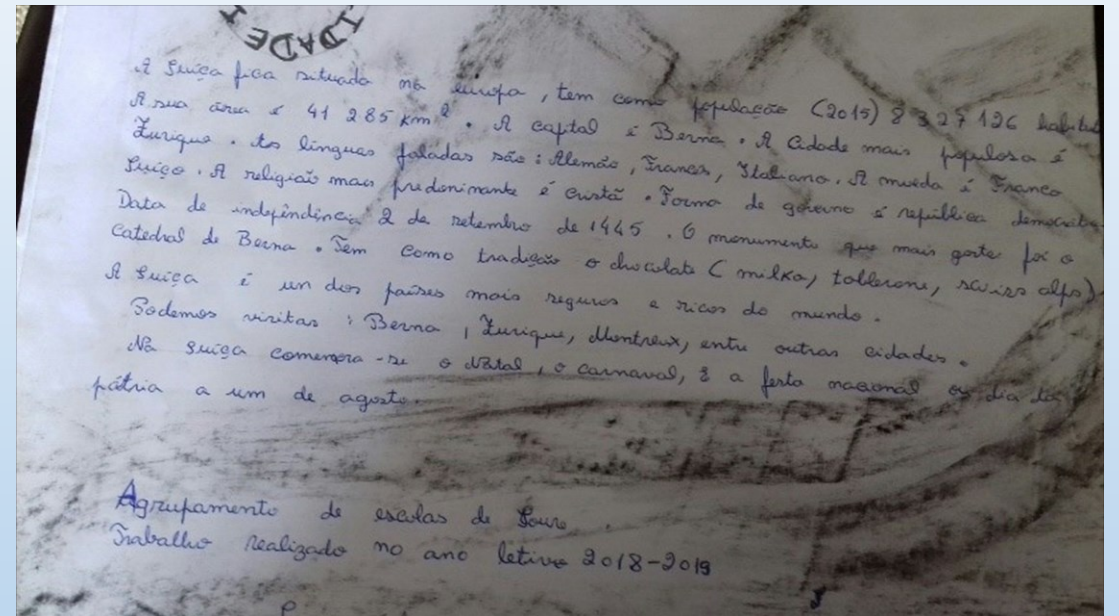 IDADE
A Suiça fica situada na europa, tem como população (2015) 8 327 126 habitan
A sua área é 41 285 km². A captal é Berna. A cidade mais populosa é
Zurique. As línguas faladas são: Alemão, Francês, Italiano. A moeda é Franco
Suiço. A religião mais predominante é cristã. Forma de governo é república democrática
Data de indepîndincia 2 de setembro de 1445. O monumento que mais gosto foi o
Catedral de Berna. Tem como tradição o chocolate (milka, tollerone, swiss alps)
A Suiça é un dos países mais seguros e ricos do mundo.
Podemos visitas: Berna, Zurique, Montreux, entre outras cidades.
Na suiça comemora-se o Natal, o carnaval, e a festa nacional ou dia da
pátria a um de agosto.
Agrupamento de escolas de Soure.
Trabalho realizado no ano letivo 2018-2019